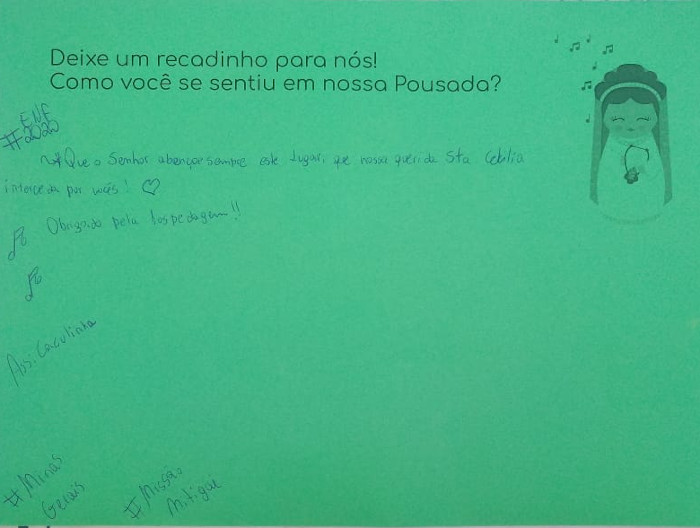 Deixe um recadinho para nós!
Como você se sentiu em nossa Pousada?
ENF
#2020
Que o Senhor abençoe sempre este lugar, que nossa querida Sta Cecilia
interceda por vocês! ♡
Obrigado pela hospedagem!!
Ass: Caculinha
#Minas
Gerais
#Missão
Mitigar